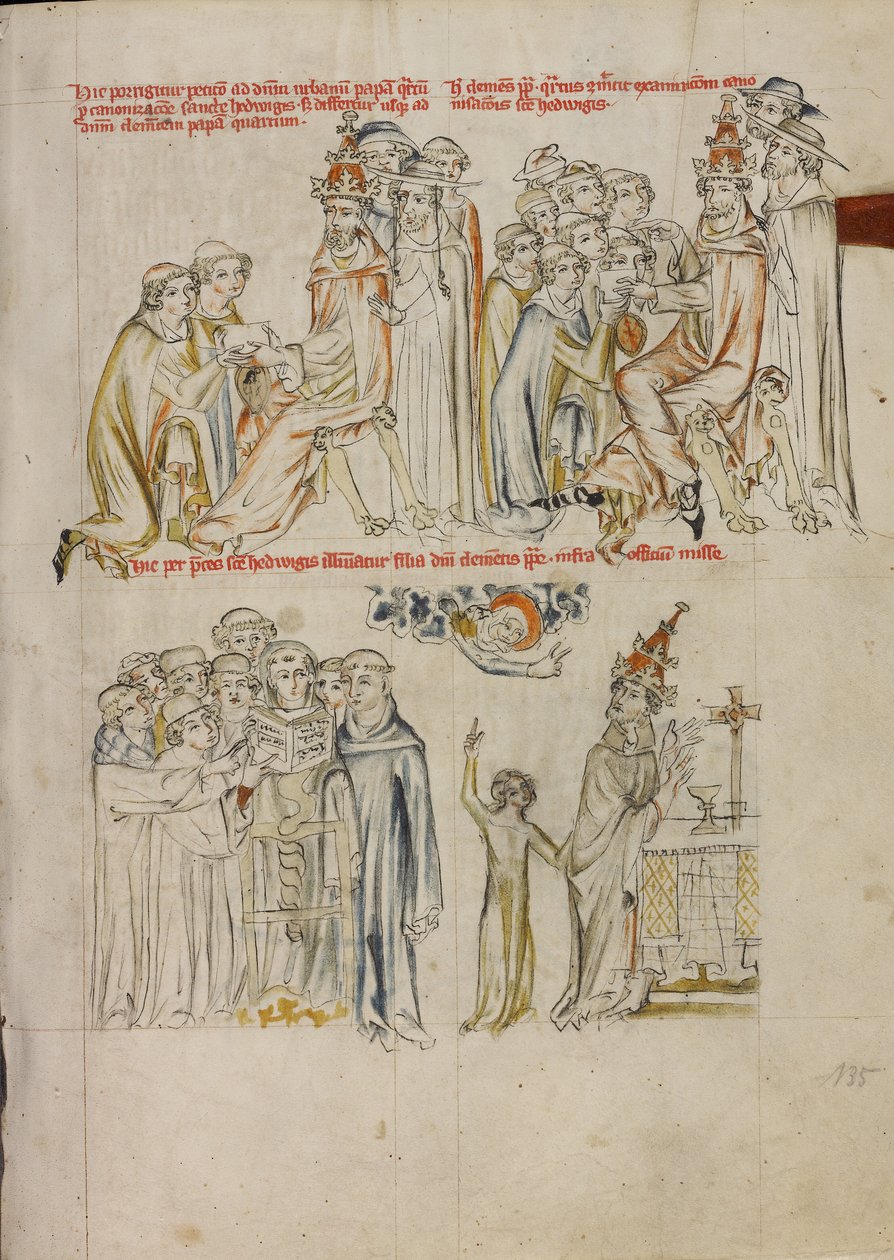 Hic porrigitur peticō ad dn̄m urbanū papā q̄rtū
ꝑ canonizac̄oē sancte hedwigis · s; differtur usq; ad
dn̄m clem̄tem papā quartum ·
H̄ clemēs pp̄ · q̄rtus ⁊mīttit examinac̄oēm cano
nisac̄ois sc̄e hedwigis ·
Hic per p̄ces sc̄e hedwigis illūīatur filia dn̄i clemētis pp̄e · infra officium misse
135